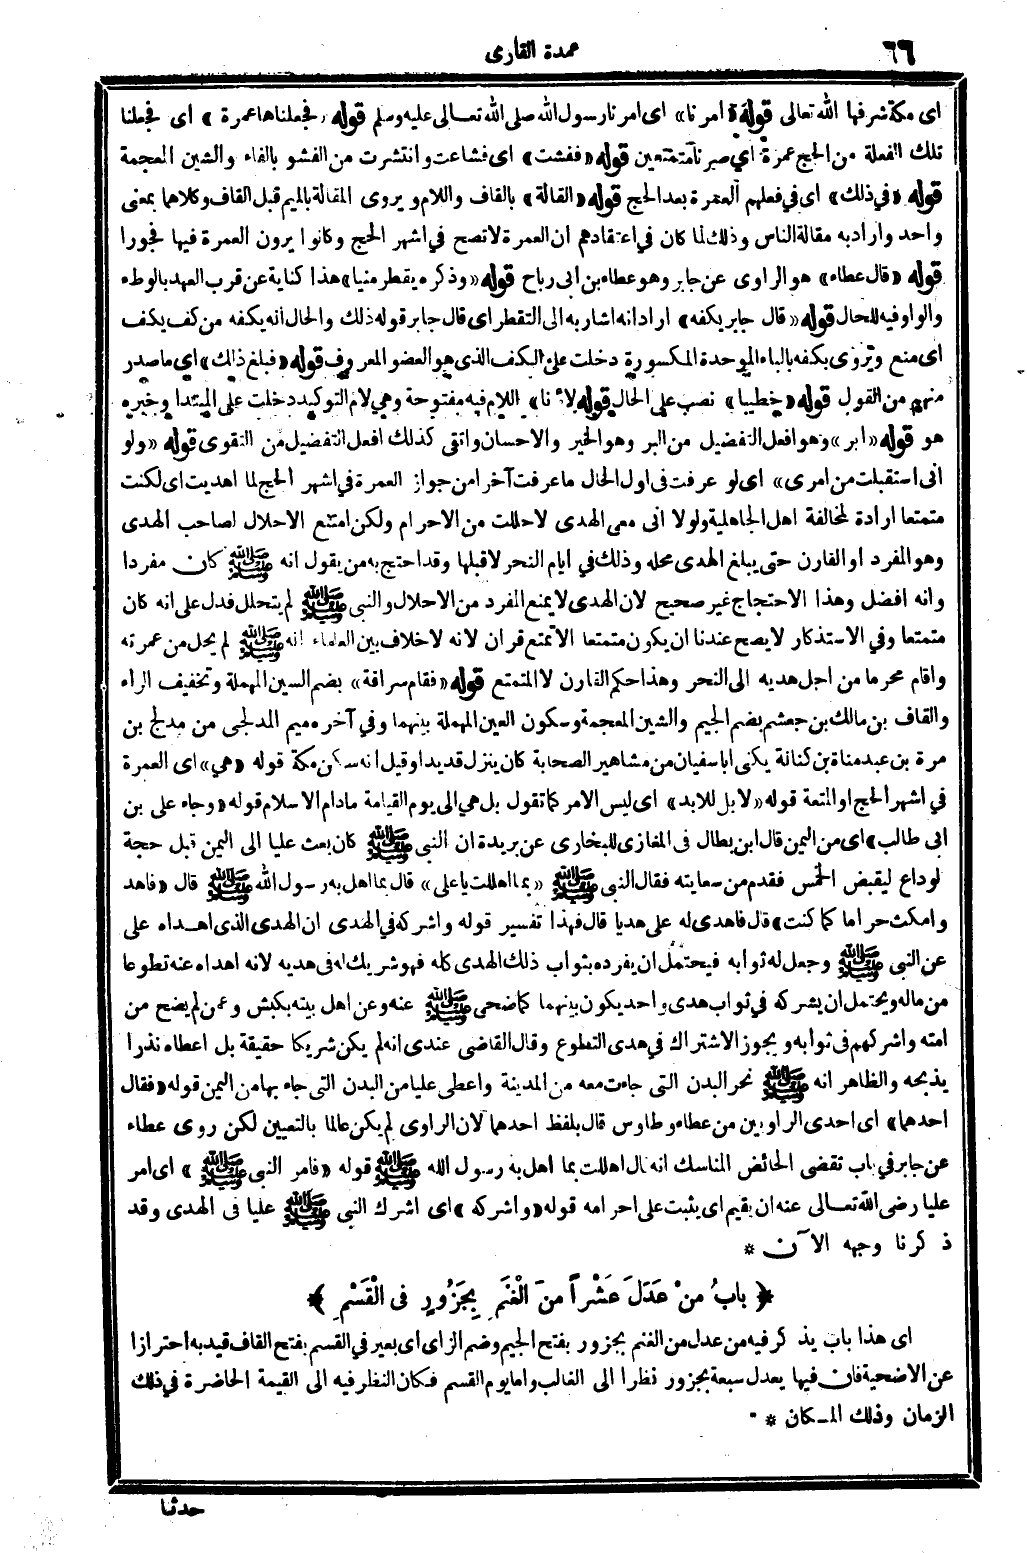 ٦٦
عمدة القارى
اى مكة شرفها الله تعالى قوله «امرنا» اى امرنا رسول الله صلى الله تعالى عليه وسلم قوله «فجعلناها عمرة» اى فجعلنا
تلك الفعلة من الحج عمرة اى صرنا متمتعين قوله «ففشت» اى فشاعت وانتشرت من الفشو بالفاء والشين المعجمة
قوله «فى ذلك» اى فى فعلهم العمرة بعد الحج قوله «القالة» بالقاف واللام ويروى المقالة بالميم قبل القاف وكلاهما بمعنى
واحد واراد به مقالة الناس وذلك لما كان فى اعتقادهم ان العمرة لا تصح فى اشهر الحج وكانوا يرون العمرة فيها فجورا
قوله «قال عطاء» هو الراوى عن جابر وهو عطاء بن ابى رباح قوله «وذكره يقطر منيا» هذا كناية عن قرب العهد بالوطء
والواو فيه للحال قوله «قال جابر بكفه» اراد انه اشار به الى التقطر اى قال جابر قوله ذلك والحال انه يكفه من كف يكف
اى منع ويروى بكفه بالباء الموحدة المكسورة دخلت على الكف الذى هو العضو المعروف قوله «فبلغ ذلك» اى ما صدر
منهم من القول قوله «خطيبا» نصب على الحال قوله «لانا» اللام فيه مفتوحة وهى لام التوكيد دخلت على المبتدا وخبره
هو قوله «ابر» وهو افعل التفضيل من البر وهو الخير والاحسان واتقى كذلك افعل التفضيل من التقوى قوله «ولو
انى استقبلت من امرى» اى لو عرفت فى اول الحال ما عرفت آخرا من جواز العمرة فى اشهر الحج لما اهديت اى لكنت
متمتعا ارادة لمخالفة اهل الجاهلية ولولا انى معى الهدى لاحللت من الاحرام ولكن امتنع الاحلال لصاحب الهدى
وهو المفرد او القارن حتى يبلغ الهدى محله وذلك فى ايام النحر لا قبلها وقد احتج به من يقول انه ﷺ كان مفردا
وانه افضل وهذا الاحتجاج غير صحيح لان الهدى لا يمنع المفرد من الاحلال والنبى ﷺ لم يتحلل فدل على انه كان
متمتعا وفى الاستذكار لا يصح عندنا ان يكون متمتعا الا تمتع قران لانه لا خلاف بين العلماء انه ﷺ لم يحل من عمرته
واقام محرما من اجل هديه الى النحر وهذا حكم القارن لا المتمتع قوله «فقام سراقة» بضم السين المهملة وتخفيف الراء
والقاف بن مالك بن جعشم بضم الجيم والشين المعجمة وسكون العين المهملة بينهما وفى آخره ميم المدلجى من مدلج بن
مرة بن عبد مناة بن كنانة يكنى ابا سفيان من مشاهير الصحابة كان ينزل قديدا وقيل انه سكن مكة قوله «هى» اى العمرة
فى اشهر الحج او المتعة قوله «لا بل للابد» اى ليس الامر كما تقول بل هى الى يوم القيامة مادام الاسلام قوله «وجاء على بن
ابى طالب» اى من اليمن قال ابن بطال فى المغازى للبخارى عن بريدة ان النبى ﷺ كان بعث عليا الى اليمن قبل حجة
لوداع ليقبض الخمس فقدم من سعايته فقال النبى ﷺ «بما اهللت يا على» قال بما اهل به رسول الله ﷺ قال «فاهد
وامكث حراما كما كنت» قال فاهدى له على هديا قال فهذا تفسير قوله واشركه فى الهدى ان الهدى الذى اهداه على
عن النبى ﷺ وجعل له ثوابه فيحتمل ان يفرده بثواب ذلك الهدى كله فهو شريك له فى هديه لانه اهداه عنه تطوعا
من ماله ويحتمل ان يشركه فى ثواب هدى واحد يكون بينهما كما ضحى ﷺ عنه وعن اهل بيته بكبش وعمن لم يضح من
امته واشركهم فى ثوابه ويجوز الاشتراك فى هدى التطوع وقال القاضى عندى انه لم يكن شريكا حقيقة بل اعطاه نذرا
يذبحه والظاهر انه ﷺ نحر البدن التى جاءت معه من المدينة واعطى عليا من البدن التى جاء بها من اليمن قوله «فقال
احدهما» اى احدى الراويين من عطاء وطاوس قال بلفظ احدهما لان الراوى لم يكن عالما بالتعيين لكن روى عطاء
عن جابر فى باب تقضى الحائض المناسك انه قال اهللت بما اهل به رسول الله ﷺ قوله «فامر النبى ﷺ» اى امر
عليا رضى الله تعالى عنه ان يقيم اى يثبت على احرامه قوله «واشركه» اى اشرك النبى ﷺ عليا فى الهدى وقد
ذكرنا وجهه الآن *
﴿ بابُ منْ عَدَلَ عَشْرًا منَ الْغَنَمِ بِجَزُورٍ فى الْقَسْمِ ﴾
اى هذا باب يذكر فيه من عدل من الغنم بجزور بفتح الجيم وضم الزاى اى بعير فى القسم بفتح القاف قيد به احترازا
عن الاضحية فان فيها يعدل سبعة بجزور نظرا الى الغالب واما يوم القسم فكان النظر فيه الى القيمة الحاضرة فى ذلك
الزمان وذلك المكان *
حدثنا